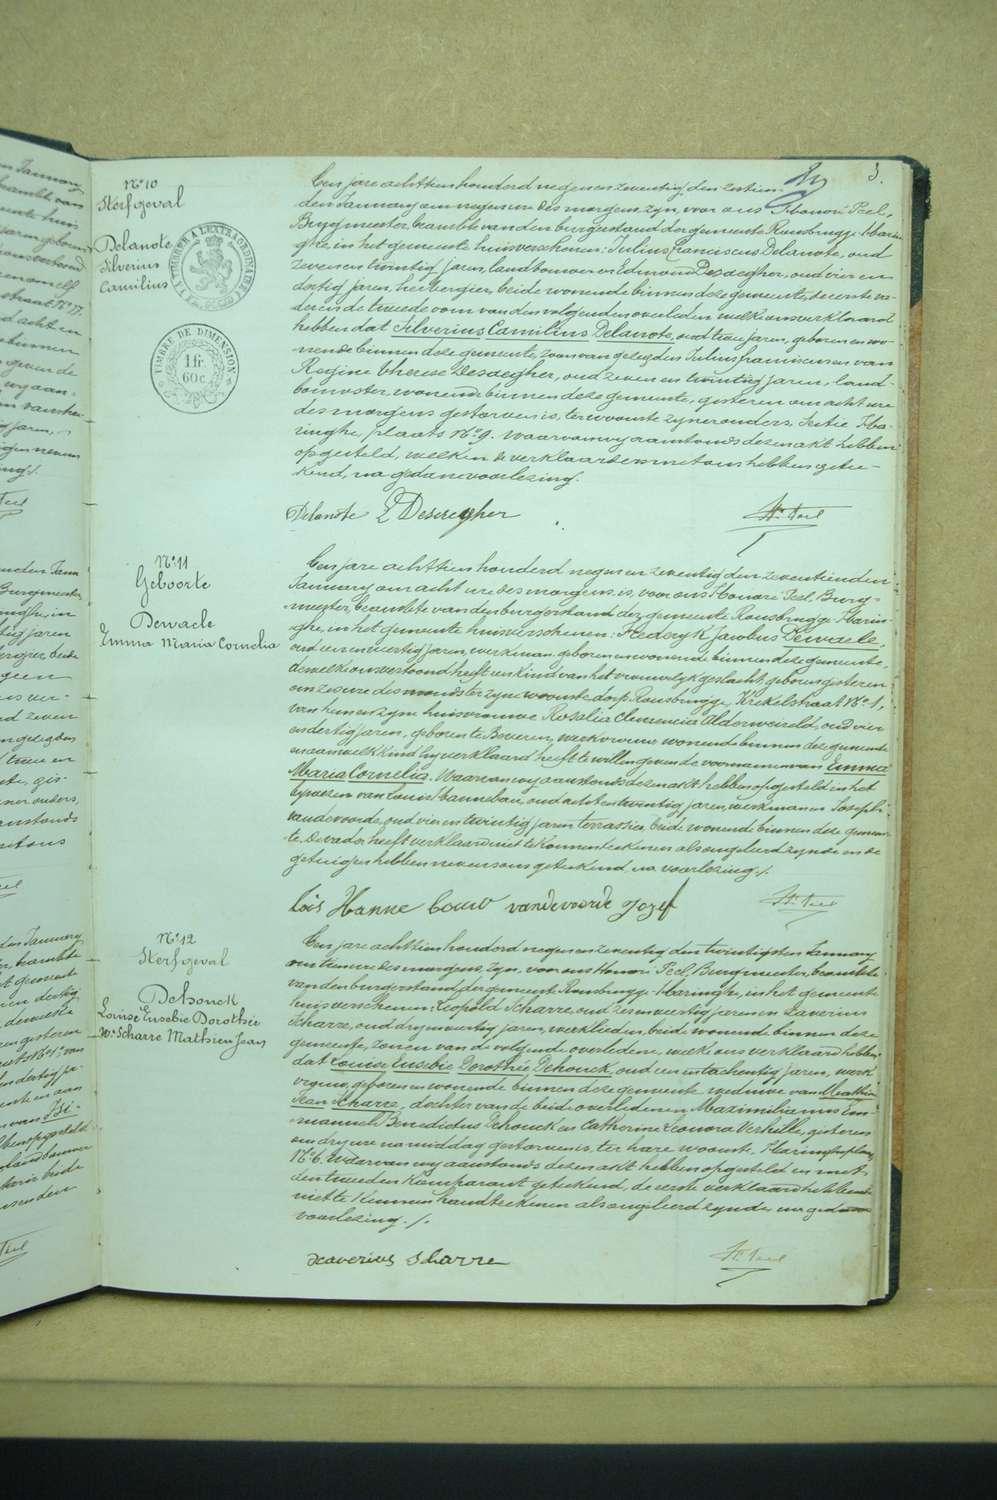 3.
N° 10
Sterfgeval
Delanote
Silverius
Camilius
TIMBRE A L'EXTRAORDINAIRE
TIMBRE DE DIMENSION
1 fr.
60 c.
Een jare achttien honderd negen en zeventig, den zestien-
den January om negen ure des morgens zyn, voor ons Honoré Peel,
Burgmeester, beambte van den burgerstand der gemeente Rousbrugge-Harin-
ghe, in het gemeente huis verschenen: Julius Franciscus Delanote, oud
zeven en twintig jaren, landbouwer en Edmond Desdegher, oud vier en
dertig jaren, herbergier, beide wonende binnen deze gemeente, de eerste va-
der en de tweede oom van den volgenden overleden welke ons verklaard
hebben dat Silverius Camilius Delanote, oud twee jaren, geboren en wo-
nende binnen deze gemeente, zoon van gezegden Julius franciscus en van
Regine Therese Desdegher, oud zeven en twintig jaren, land-
bouwster, wonende binnen deze gemeente, gisteren om acht ure
des morgens gestorven is, ter woonste zyner ouders, Sectie Ha-
ringhe, plaats N° 9. Waarvan wy aanstonds dezen akt hebben
opgesteld, welken de verklaarders met ons hebben getee-
kend, na gedane voorlezing.
Delanote E Desdegher Hré Peel
N° 11
Geboorte
Dewaele
Emma Maria Cornelia
Een jare achttien honderd negen en zeventig den zeventienden
January om acht ure des morgens, is, voor ons Honoré Peel, Burg-
meester, beambte van den burgerstand der gemeente Rousbrugge-Harin-
ghe, in het gemeente huis verschenen: Frederyk Jacobus Dewaele,
oud een en veertig jaren, werkman, geboren en wonende binnen deze gemeente,
dewelke ons vertoond heeft een kind van het vrouwelyk geslacht, geboren gisteren
om zes ure des avonds ter zyne woonste dorp Rousbrugge, Krekelstraat N° 1,
van hem en zyne huisvrouwe Rosalia Clemencia Alderweireld, oud vier
en dertig jaren, geboren te Beveren, werkvrouw wonende binnen deze gemeente
en aan welk kind hy verklaard heeft te willen geven de voornamen van Emma
Maria Cornelia. Waarvan wy aanstonds dezen akt hebben opgesteld in het
bywezen van Louis Hannebau, oud acht en twintig jaren, werkman en Joseph
Vandevoorde, oud vier en twintig jaren terrassier, beide wonende binnen deze gemeen-
te. De vader heeft verklaard niet te konnen teekenen als ongeleerd zynde en de
getuigen hebben nevens ons geteekend, na voorlezing./.
Lois Hanne bouw vandevoorde Jozef Hré Peel
N° 12
Sterfgeval
Dehonck
Louise Eusebie Dorothée
We Scharre Mathieu Jean
Een jare achttien honderd negen en zeventig den twintigsten January
om tien ure des morgens, zyn, voor ons Honoré Peel, Burgmeester, beambte
van den burgerstand der gemeente Rousbrugge-Haringhe, in het gemeente
huis verschenen: Leopold Scharre, oud zes en veertig jaren en Xaverius
Scharre, oud dry en veertig jaren, werklieden, beide wonende binnen deze
gemeente, zonen van de volgende overledene, welke ons verklaard hebben
dat Louise Eusebie Dorothée Dehonck, oud een en tachentig jaren, werk-
vrouw, geboren en wonende binnen deze gemeente weduwe van Mathieu
Jean Scharre, dochter van de beide overledenen Maximilianus Em-
manuel Benedictus Dehonck en Catherine Leonora Verhille, gisteren
om dry ure namiddag gestorven is, ter hare woonste, Haringheplaats,
N° 6. Waarvan wy aanstonds dezen akt hebben opgesteld en met
den tweeden komparant geteekend, de eerste verklaard hebbende
niet te kunnen handteekenen als ongeleerd zynde na gedane
voorlezing./.
Xaverius Scharre Hré Peel